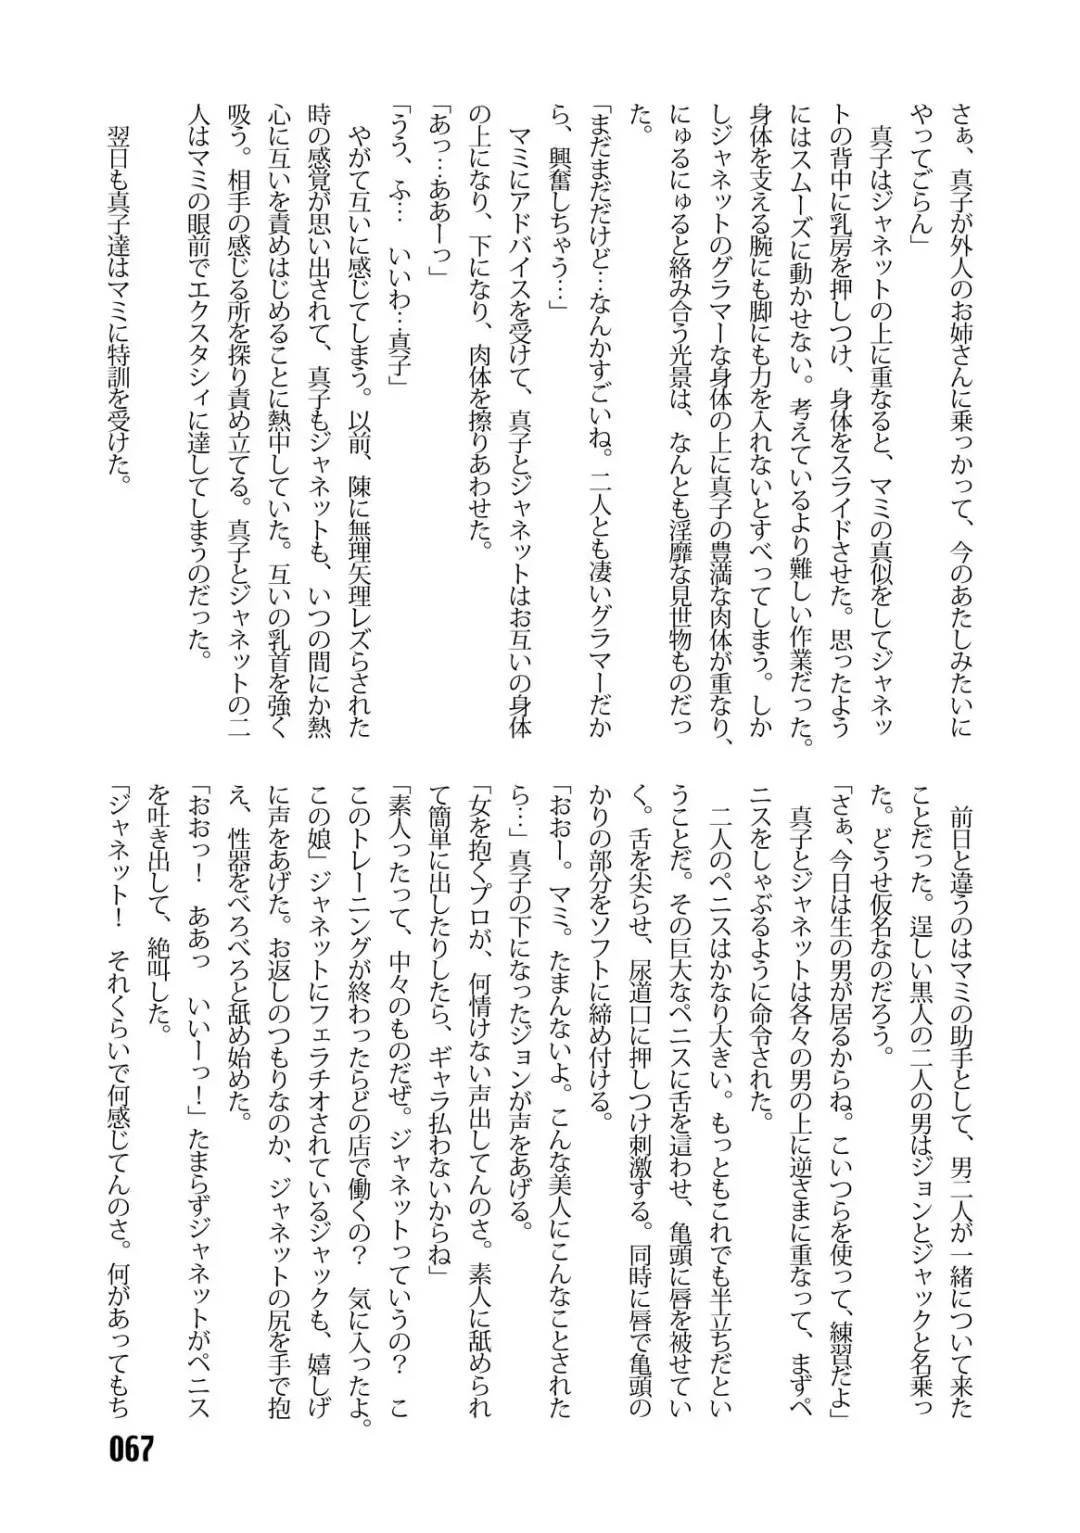 さぁ、真子が外人のお姉さんに乗っかって、今のあたしみたいに
やってごらん」
　真子はジャネットの上に重なると、マミの真似をしてジャネッ
トの背中に乳房を押しつけ、身体をスライドさせた。思ったよう
にはスムーズに動かせない。考えているより難しい作業だった。
身体を支える腕にも脚にも力を入れないとすべってしまう。しか
しジャネットのグラマーな身体の上に真子の豊満な肉体が重なり、
にゅるにゅると絡み合う光景は、なんとも淫靡な見世物ものだっ
た。
「まだまだだけど…なんかすごいね。二人とも凄いグラマーだか
ら、興奮しちゃう…」
　マミにアドバイスを受けて、真子とジャネットはお互いの身体
の上になり、下になり、肉体を擦りあわせた。
「あっ…ああーっ」
「うう、ふ…　いいわ…真子」
　やがて互いに感じてしまう。以前、陳に無理矢理レズらされた
時の感覚が思い出されて、真子もジャネットも、いつの間にか熱
心に互いを責めはじめることに熱中していた。互いの乳首を強く
吸う。相手の感じる所を探り責め立てる。真子とジャネットの二
人はマミの眼前でエクスタシィに達してしまうのだった。
　翌日も真子達はマミに特訓を受けた。
　前日と違うのはマミの助手として、男二人が一緒について来た
ことだった。逞しい黒人の二人の男はジョンとジャックと名乗っ
た。どうせ仮名なのだろう。
「さぁ、今日は生の男が居るからね。こいつらを使って、練習だよ」
　真子とジャネットは各々の男の上に逆さまに重なって、まずペ
ニスをしゃぶるように命令された。
　二人のペニスはかなり大きい。もっともこれでも半立ちだとい
うことだ。その巨大なペニスに舌を這わせ、亀頭に唇を被せてい
く。舌を尖らせ、尿道口に押しつけ刺激する。同時に唇で亀頭の
かりの部分をソフトに締め付ける。
「おおー。マミ。たまんないよ。こんな美人にこんなことされた
ら…」真子の下になったジョンが声をあげる。
「女を抱くプロが、何情けない声出してんのさ。素人に舐められ
て簡単に出したりしたら、ギャラ払わないからね」
「素人ったって、中々のものだぜ。ジャネットっていうの？　こ
このトレーニングが終わったらどの店で働くの？　気に入ったよ。
この娘」ジャネットにフェラチオされているジャックも、嬉しげ
に声をあげた。お返しのつもりなのか、ジャネットの尻を手で抱
え、性器をべろべろと舐め始めた。
「おおっ！　ああっ　いいーっ！」たまらずジャネットがペニス
を吐き出して、絶叫した。
「ジャネット！　それくらいで何感じてんのさ。何があってもち
067